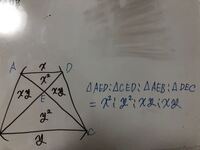 x
A
D
x²
xy
xy
E
y²
C
y
△AED:△CED:△AEB:△DEC
= x²: y²: xy: xy